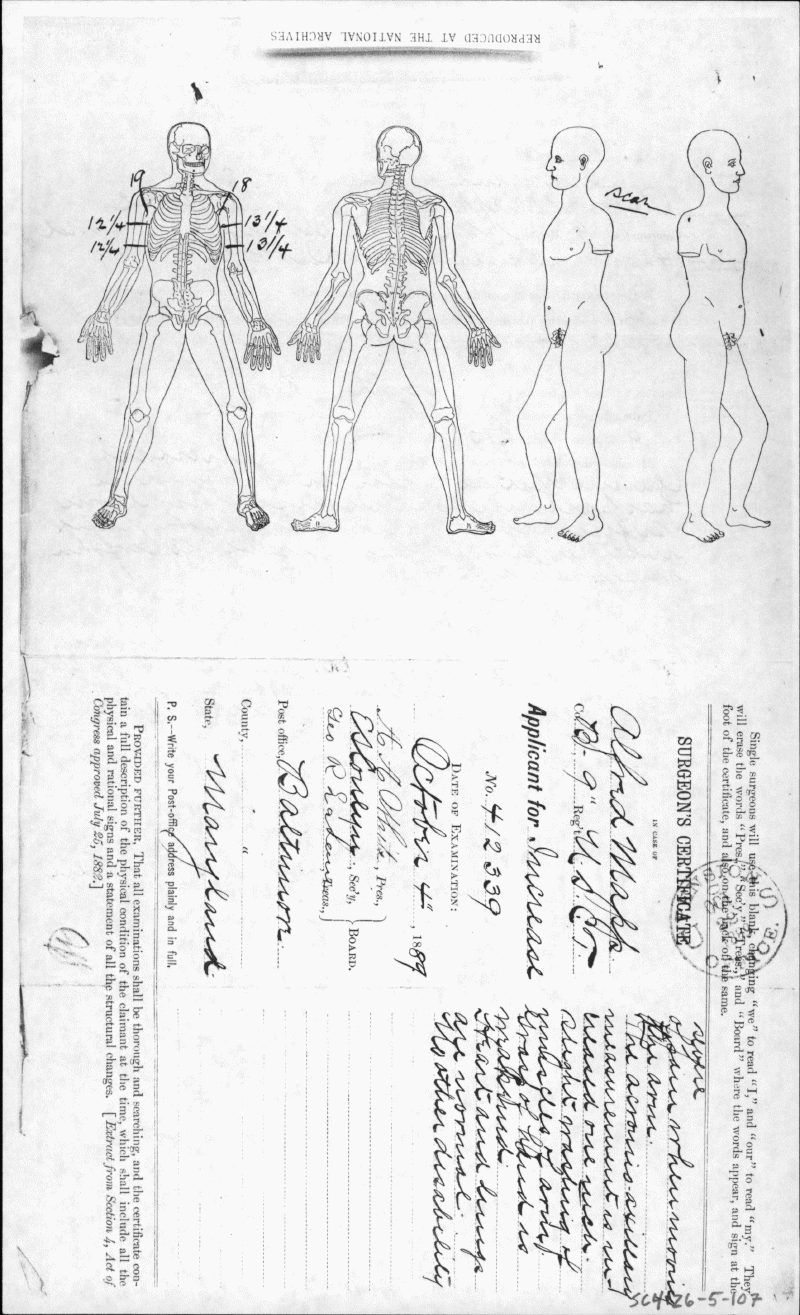 REPRODUCED AT THE NATIONAL ARCHIVES
19
18
12 1/4
13 1/4
12 1/4
13 1/4
scar
Single surgeons will use this blank, changing "we" to read "I," and "our" to read "my." They
will erase the words "Pres.," "Sec'y," "Treas.," and "Board" where the words appear, and sign at the
foot of the certificate, and also on the back of the same.
SURGEON'S CERTIFICATE
IN CASE OF
Alfred Mapp
Co. B-9" Reg't U.S.C.T.
Applicant for Increase
No. 412339
DATE OF EXAMINATION:
October 4", 1889
Pres.,
Sec'y,
Geo R Treas.,
BOARD.
Post office, Baltimore
County, "
State, Maryland
P. S.—Write your Post-office address plainly and in full.
severe
of pain when moving
the arm.
The acromio-axillary
measurement is in-
creased one inch.
slight wasting of
muscles of arm.
Grasp of hand is
Heart and lungs
are normal.
No other disability
PROVIDED FURTHER, That all examinations shall be thorough and searching, and the certificate con-
tain a full description of the physical condition of the claimant at the time, which shall include all the
physical and rational signs and a statement of all the structural changes. [Extract from Section 4, Act of
Congress approved July 25, 1882.]
SC4126-5-107